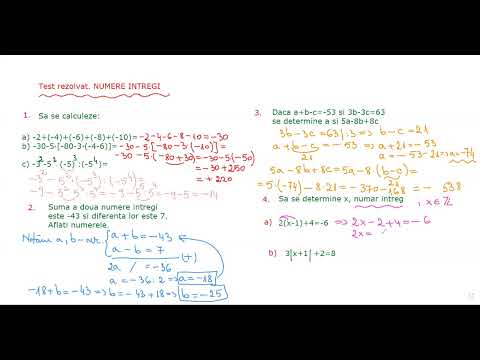 Test rezolvat. NUMERE INTREGI
1. Sa se calculeze:
a) -2+(-4)+(-6)+(-8)+(-10)=-2-4-6-8-10=-30
b) -30-5·[-80-3·(-4-6)]=-30-5·[-80-3·(-10)]=
-30-5·(-80+30)=-30-5·(-50)
=-30+250
=+220
2. Suma a doua numere intregi
este -43 si diferenta lor este 7.
Aflati numerele.
Notăm a, b-nr.
a+b=-43
a-b=7 (+)
2a / =-36
a=-36:2⇒a=-18
-18+b=-43⇒b=-43+18⇒b=-25
3. Daca a+b-c=-53 si 3b-3c=63
se determine a si 5a-8b+8c
3b-3c=63|:3⇒b-c=21
a+b-c=-53⇒a+21=-53
21 a=-53-21⇒a=-74
5a-8b+8c=5a-8·(b-c)=
21
=5·(-74)-8·21=-370-168=-538
4. Sa se determine x, numar intreg , x∈Z
a) 2(x-1)+4=-6 ⇒2x-2+4=-6
2x=
b) 3|x+1|+2=8